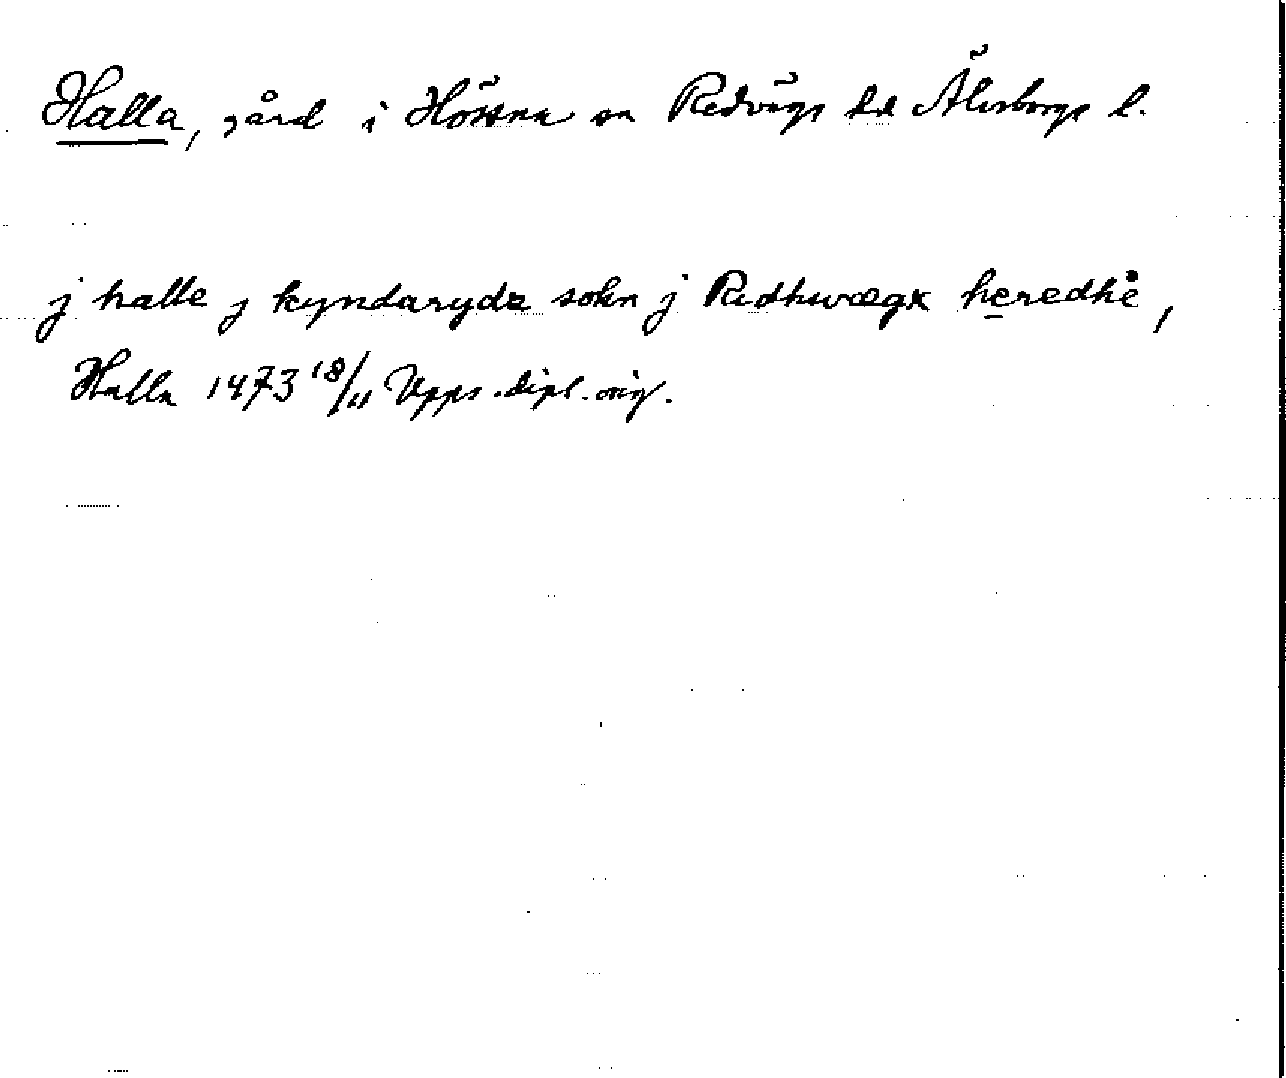 Halla, gård i Hössna sn Redvägs hd Älvsborgs l.
j halle j kyndarydz sokn j Redhwægx heredhe,
Halla 1473 18/11 Upps. dipl. orig.